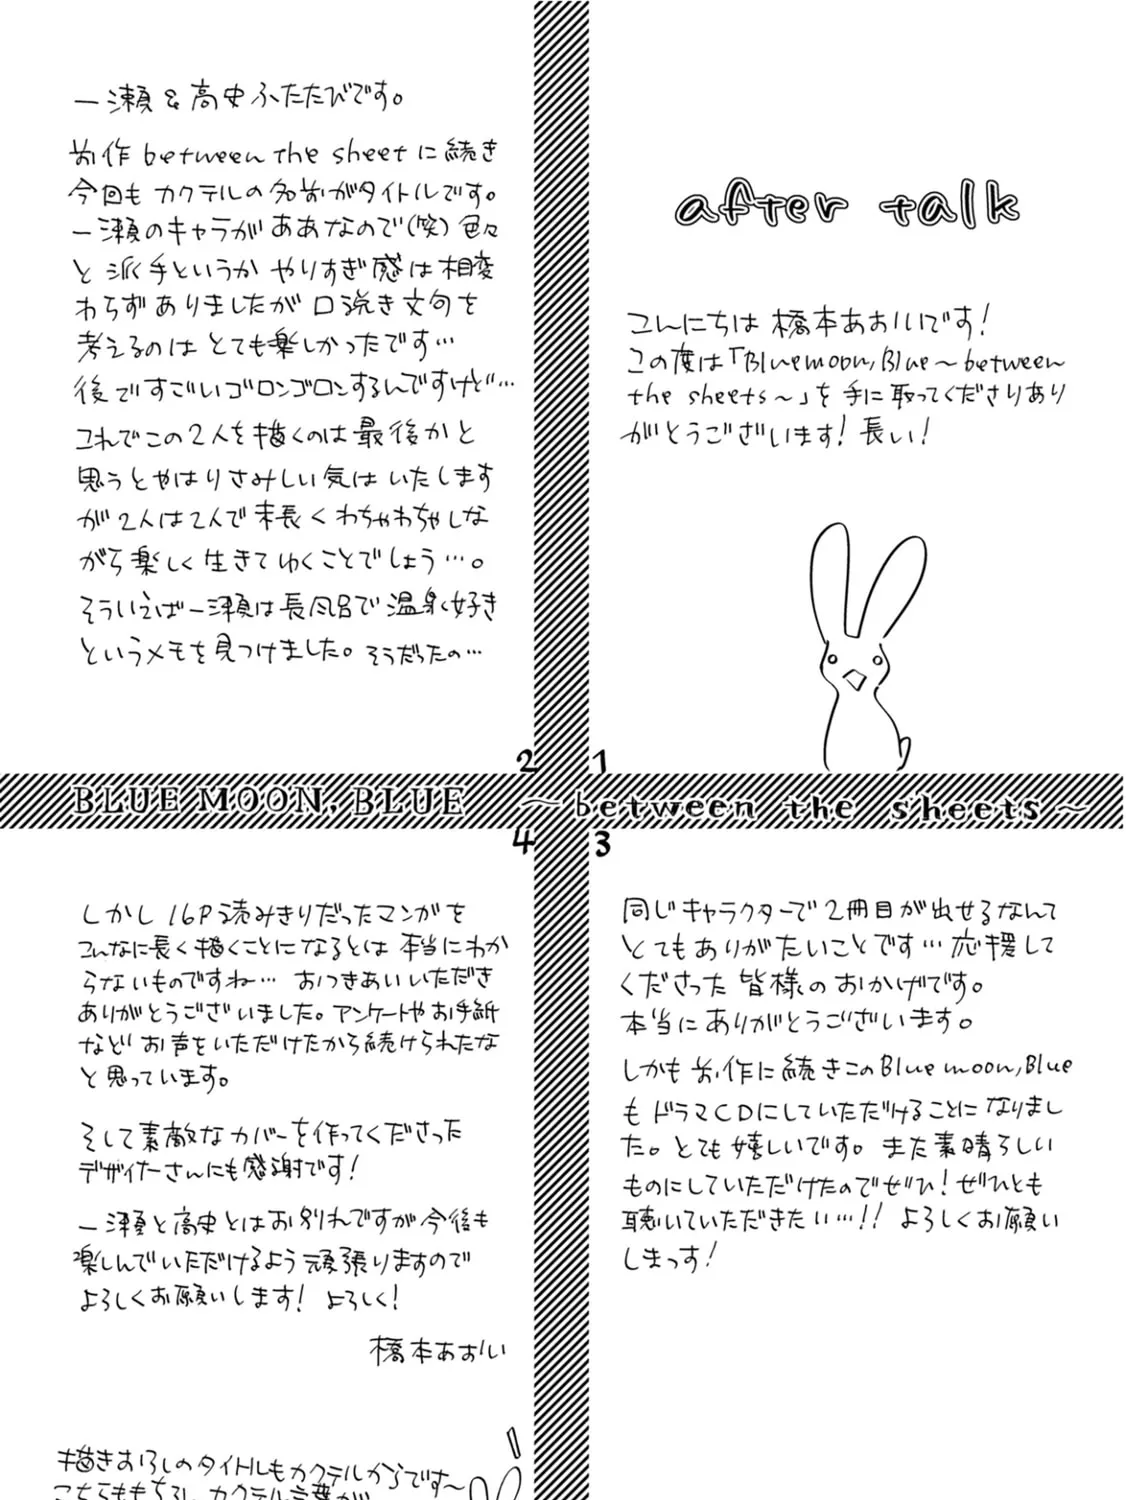 after talk
こんにちは 橋本あおいです!
この度は「Bluemoon,Blue～between
the sheets～」を手に取ってくださりあり
がとうございます!長い!
1
2
一瀬&高史ふたたびです。
前作 between the sheet に続き
今回も カクテルの名前がタイトルです。
一瀬のキャラが ああなので(笑)色々
と 派手というか やりすぎ感は 相変
わらず ありましたが 口説き文句を
考えるのは とても楽しかったです…
後ですごいゴロンゴロンするんですけど…
これでこの2人を描くのは 最後かと
思うとやはりさみしい気は いたします
が 2人は2人で 末長くわちゃわちゃしな
がら楽しく 生きてゆくことでしょう…。
そういえば一瀬は長風呂で 温泉好き
というメモを見つけました。そうだったの…
BLUE MOON, BLUE ～between the sheets～
3
同じキャラクターで 2冊目が出せるなんて
とてもありがたいことです… 応援して
くださった 皆様の おかげです。
本当に ありがとうございます。
しかも 前作に 続きこのBlue moon,Blue
も ドラマCDにしていただけることになりまし
た。とても嬉しいです。また素晴らしい
ものにしていただけたのでぜひ!ぜひとも
聴いていただきたい…!! よろしくお願い
しまっす!
4
しかし 16P読みきりだったマンガを
こんなに長く描くことになるとは 本当にわか
らないものですね… おつきあいいただき
ありがとうございました。アンケートや お手紙
など お声をいただけたから続けられたな
と思っています。
そして素敵な カバーを作ってくださった
デザイナーさんにも感謝です!
一瀬と高史とはお別れですが今後も
楽しんでいただけるよう頑張りますので
よろしくお願いします! よろしく!
橋本あおい
描きおろしのタイトルもカクテルからです～